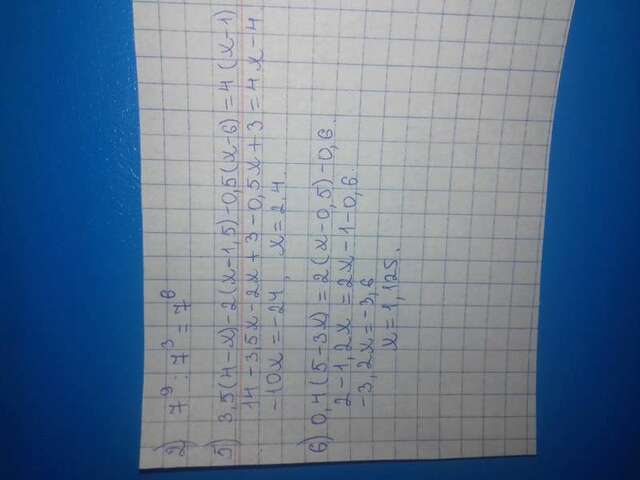 2) 7⁹ : 7³ = 7⁶
5) 3,5(4-x)-2(x-1,5)-0,5(x-6)=4(x-1)
14-3,5x-2x+3-0,5x+3=4x-4
-10x=-24, x=2,4.
6) 0,4(5-3x)=2(x-0,5)-0,6.
2-1,2x=2x-1-0,6.
-3,2x=-3,6
x=1,125.